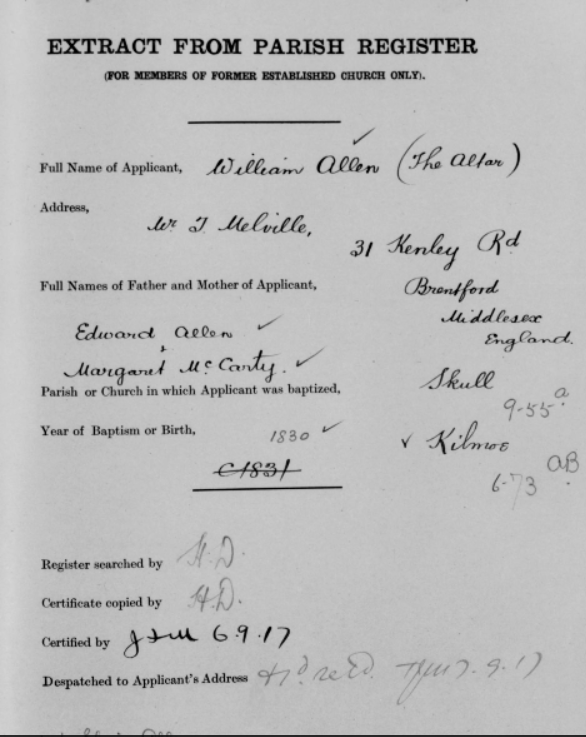 EXTRACT FROM PARISH REGISTER
(FOR MEMBERS OF FORMER ESTABLISHED CHURCH ONLY).
Full Name of Applicant, William Allen (The Altar)
Address,
Mr T Melville,
31 Kenley Rd
Brentford
Middlesex
England.
Full Names of Father and Mother of Applicant,
Edward Allen
Margaret McCarty.
Parish or Church in which Applicant was baptized,
Skull
9-55 a
Year of Baptism or Birth, 1830
Kilmoe
C1831
6-73 aB
Register searched by H.D.
Certificate copied by H.D.
Certified by 6.9.17
Despatched to Applicant's Address 7.9.17